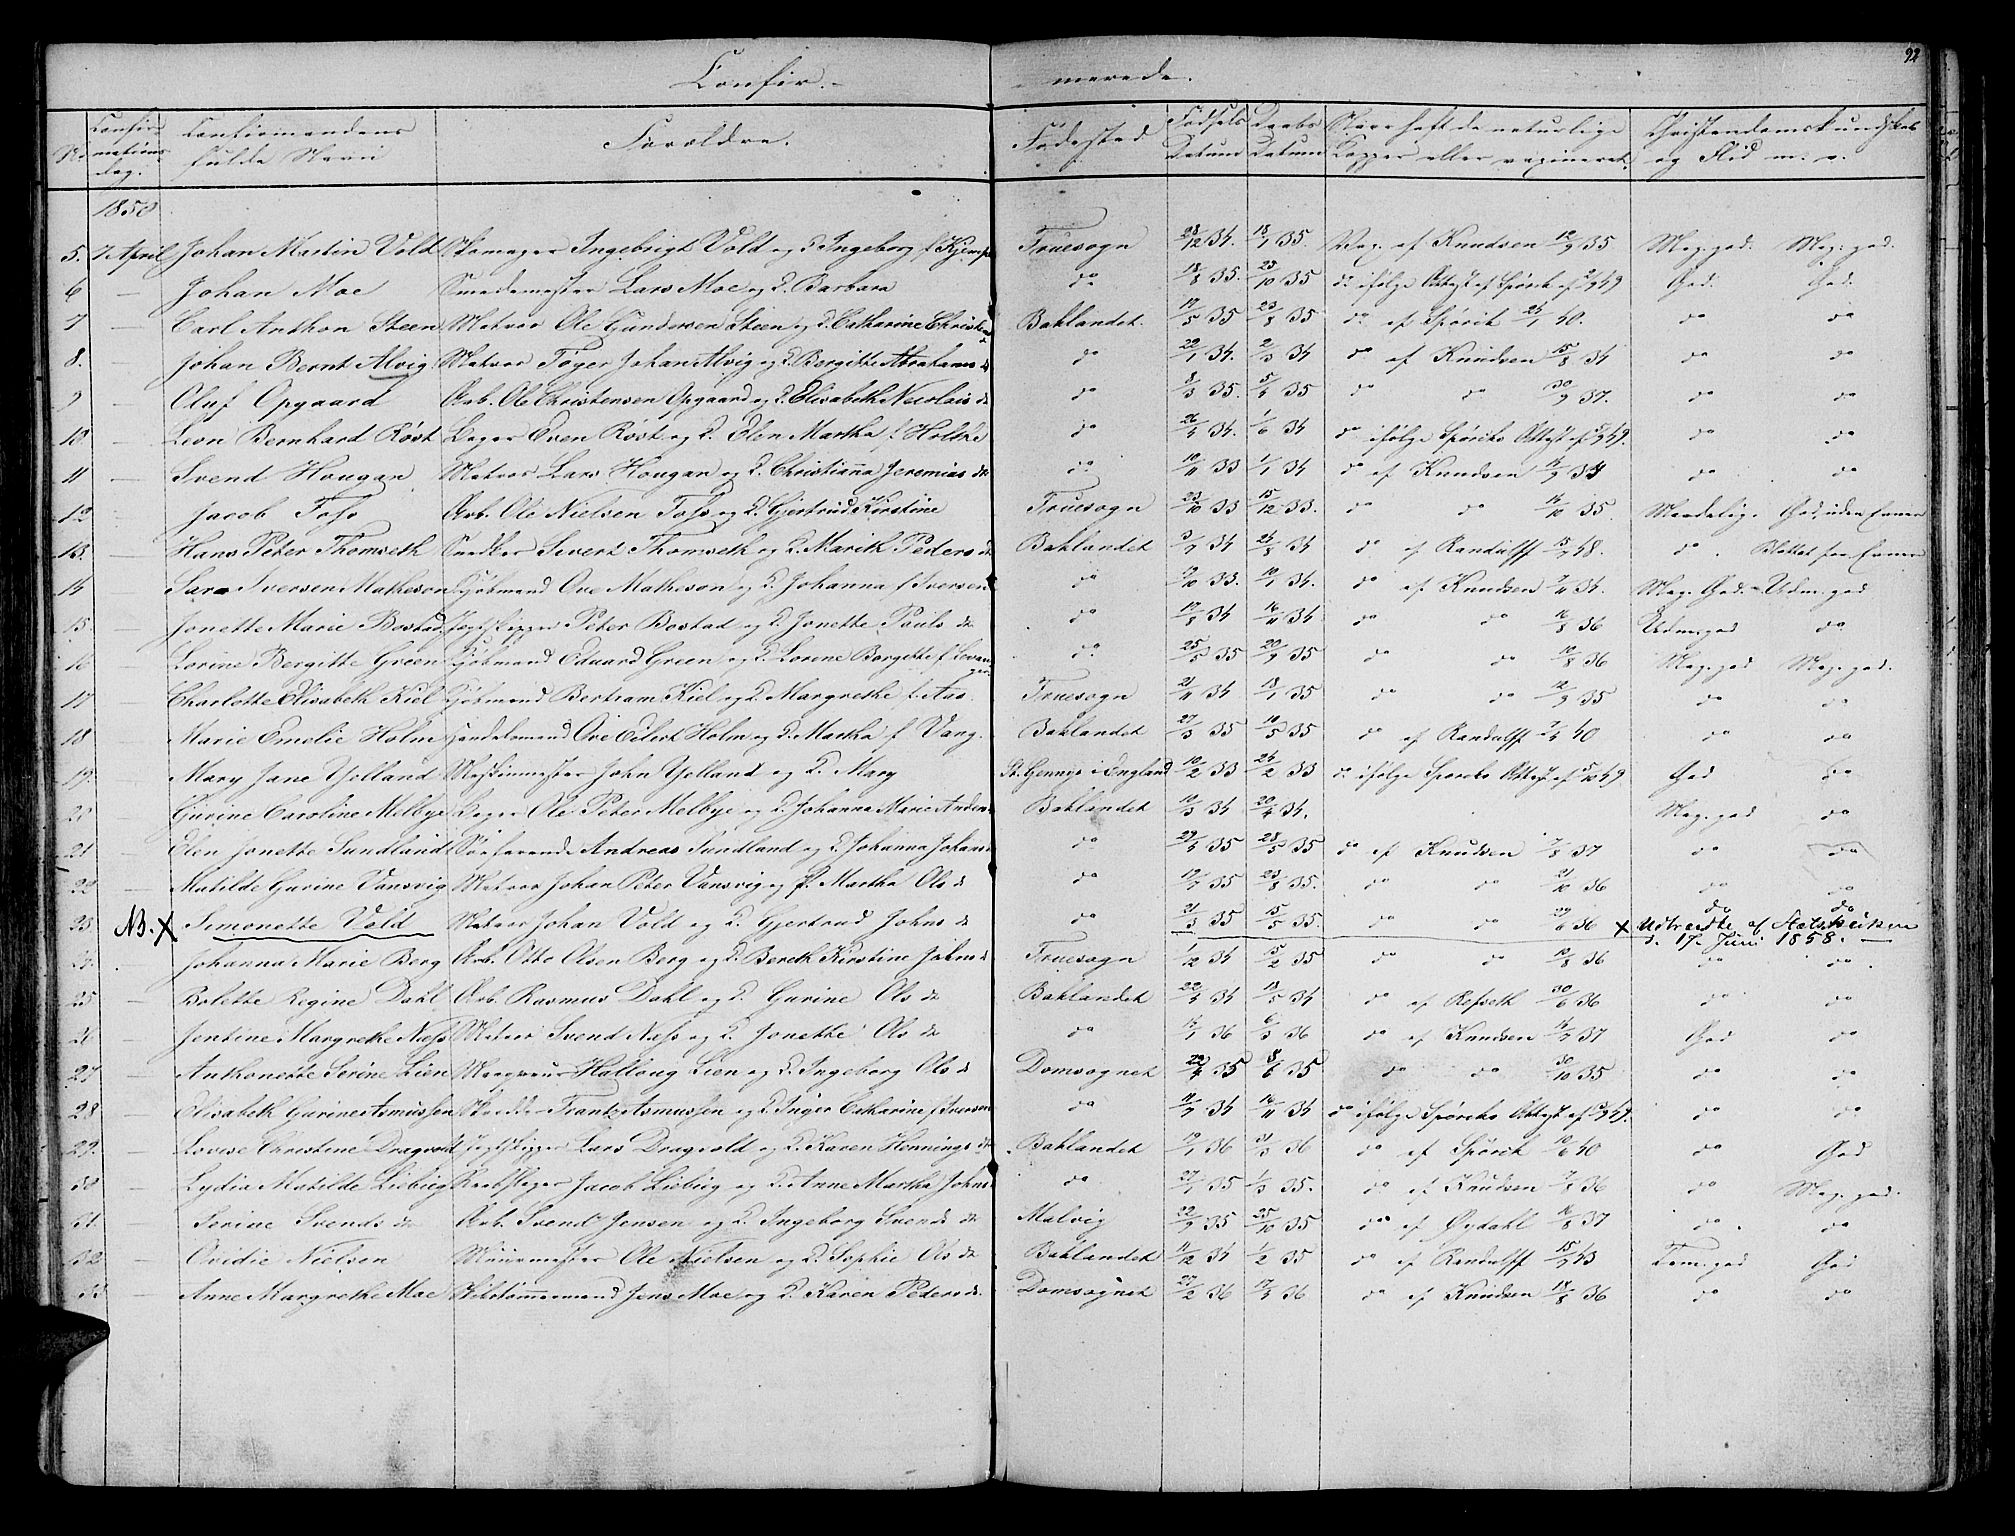 92
Confir- merede.
No Confirmations dag. Confirmandens fulde Navn Forældre. Fødested Fødsels Datum Daabs Datum Kopper eller vaxineret. Christendomskundskab og Flid m. v.
1850
5. 7 April Johan Martin Vold Skomager Ingebrigt Vold og Ingeborg f Kjempe Fruesogn 28/12 34. 18/1 35. Vax. af Knudsen 35 Meg. god. Meg. god.
6 — Johan Moe Smedemester Lars Moe og Barbara do 18/8 35. 23/10 35 do ifølge Attest af Spørck af 49 God. God.
7 — Carl Anthon Steen Matros Ole Gundersen Steen og Catharine Baklandet. 17/5 35 23/8 35 do af Spørck 40. do do
8. — Johan Bernt Alvig Matros Johan Alvig og Bergitte Abrahams d do 22/1 34. 2/3 34 do af Knudsen 15/8 34 do do
9 — Oluf Opgaard Arb. Ole Christensen Opgaard og Elisabeth Nicolais dr do 8/3 35. 35 do do 30/9 37. do do
10 — Leon Bernhard Røst Bager Even Røst og Elen Martha f. Holthe do 26/4 34. 1/6 34 do ifølge Spørcks Attest af 49. do do
11 — Svend Hougan Matros Lars Hougan og Christianna Jeremias dr do 10/11 33 1/1 34 do af Knudsen 34 do do
12 — Jacob Foss Arb. Ole Nielsen Foss og Gjertrud Kirstine Fruesogn 23/10 33 15/12 33. do do 14/10 35. Maadelig. God, uden Evner
13. — Hans Peter Thomseth Snedker Sivert Thomseth og Marith Peders dr Baklandet 34 24/8 34 do af Randulff 48. do. Blottet for Evner
14 — Sara Iversen Matheson Kjøbmand Ove Matheson og Johanna f Iversen do 33. 34. do af Knudsen 34. Meg. God. Udm. god
15. — Jonette Marie Bostad Jegtskipper Peter Bostad og Jonette Pauls dr do 34 16/11 34 do do 16/8 36 Udm. god do
16 — Lorine Bergitte Green Kjøbmand Eduard Green og Lorene Bergitte f. Levanger do 25/5 35 20/9 35 do do 10/8 36 Meg. god Meg. god.
17 — Charlotte Elisabeth Kiel Kjøbmand Bertram Kiel og Margrethe f. Aas Fruesogn 21/11 34 18/1 35 do do 12/9 35 do do
18 — Marie Emelie Holm Handelsmand Ove Eilert Holm og Martha f Vang. Baklandet 27/3 35 10/5 35 do af Randulff 40 do do
19. — Mary Jane Yelland Maskinmester John Yelland og Mary St. Gennys i England 10/2 33 24/2 33 do ifølge Spørcks Attest af 49. God do
20 — Gurine Caroline Melbye Bager Ole Peter Melbye og Johanna Marie Anders Baklandet 10/3 34 20/4 34. Meg. god do
21 — Elen Jonette Sundland Søefarende Andreas Sundland og Johanna Johans do 35 28/5 35 do af Knudsen 7/8 37 do do
22 — Matilde Gurine Vansvig Matros Johan Peter Vansvig og Martha Ols d do 35 23/8 35. do do 21/10 36 do do
23. NB. X Simonette Vold Matros Johan Vold og Gjertrud Johns d do 21/3 35 15/5 35. do do 29/6 36 do do
X Udtraadte af Statskirken d. 17. Juni 1858. —
24. Johanna Marie Berg Arb. Otto Olsen Berg og Bereth Kirstine Johns d Fruesogn 1/12 34 15/2 35 do do 10/8 36 do do
25 — Bolette Regine Dahl Arb. Rasmus Dahl og Gurine Ols dr Baklandet 34 18/5 34 do af Refseth 30/6 36 do do
26 — Jentine Margrethe Næss Matros Svend Næss og Jonette Ols dr do 36 6/3 36 do af Knudsen 37 God do
27 — Anthonette Serine Lien Halloug Lien og Ingeborg Ols d Domsognet 35 8/6 35 do do 30/10 35 do do
28 — Elisabeth Gurine Asmussen Skredder Frantz Asmussen og Inger Catharine f Iversen do 34 16/11 34 do ifølge Spørcks Attest af 49. do do
29. — Lovise Christine Dragvold Jegtskipper Lars Dragvold og Karen Hennings dr Baklandet 19/1 36 21/3 36 do af Spørck 10/6 40 do God
30 — Lydia Matilde Liebig Rebslager Jacob Liebig og Anne Martha Johns do 27/1 35 1/3 35. do af Knudsen 7/8 36 do Meg. god.
31. — Serine Svends dr Arb. Svend Jensen og Ingeborg Svends dr Malvig 22/9 35 25/10 35 do af Øydahl 16/8 37 do. do
32 — Ovidie Nielsen Muurmester Ole Nielsen og Sophie Ols dr Baklandet 11/12 34 1/2 35 do af Randulff 43 Tem. god God
33 — Anne Margrethe Moe Skibstømmermand Jens Moe og Karen Peders d. Domsognet 27/2 36 17/4 36 do af Knudsen 18/8 36 do do